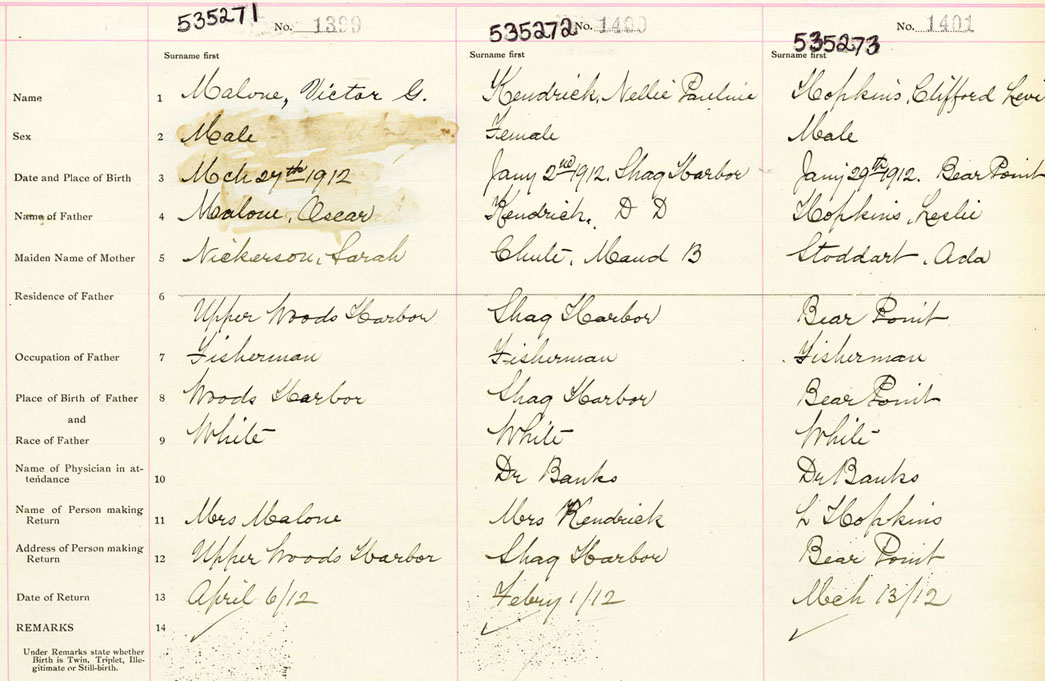 535271 No. 1399 535272 No. 1400 535273 No. 1401
Surname first Surname first Surname first
Name 1 Malone, Victor G. Kendrick, Nellie Pauline Hopkins, Clifford Levi
Sex 2 Male Female Male
Date and Place of Birth 3 Mch 27th 1912 Jany 2nd 1912. Shag Harbor Jany 29th 1912. Bear Point
Name of Father 4 Malone, Oscar Kendrick, D D Hopkins, Leslie
Maiden Name of Mother 5 Nickerson, Sarah Chute, Maud B Stoddart, Ada
Residence of Father 6
Upper Woods Harbor Shag Harbor Bear Point
Occupation of Father 7 Fisherman Fisherman Fisherman
Place of Birth of Father 8 Woods Harbor Shag Harbor Bear Point
and
Race of Father 9 White White White
Name of Physician in at-
tendance 10 Dr Banks Dr Banks
Name of Person making
Return 11 Mrs Malone Mrs Kendrick L Hopkins
Address of Person making
Return 12 Upper Woods Harbor Shag Harbor Bear Point
Date of Return 13 April 6/12 Febry 1/12 Mch 13/12
REMARKS 14
Under Remarks state whether
Birth is Twin, Triplet, Ille-
gitimate or Still-birth.